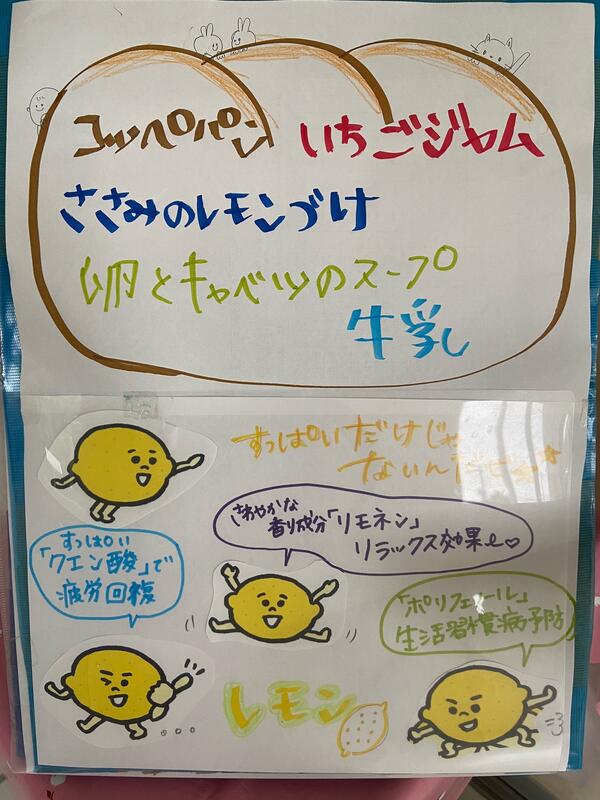 コッペパン いちごジャム
ささみのレモンづけ
卵とキャベツのスープ
牛乳
すっぱいだけじゃ
ないんだぜ
さわやかな
香り成分「リモネン」
リラックス効果も♡
すっぱい
「クエン酸」で
疲労回復
「ポリフェノール」
生活習慣病予防
レモン